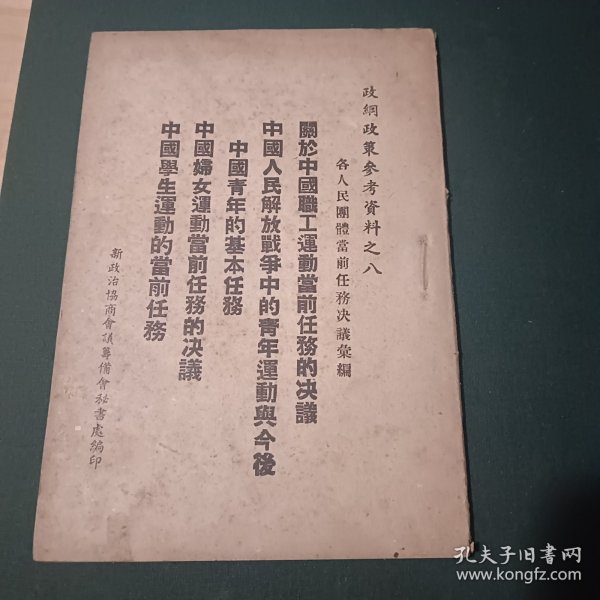 政綱政策參考資料之八
各人民團體當前任務決議彙編
關於中國職工運動當前任務的决議
中國人民解放戰爭中的青年運動與今後
中國青年的基本任務
中國婦女運動當前任務的决議
中國學生運動的當前任務
新政治協商會議籌備會秘書處編印
孔夫子旧书网
www.kongfz.com